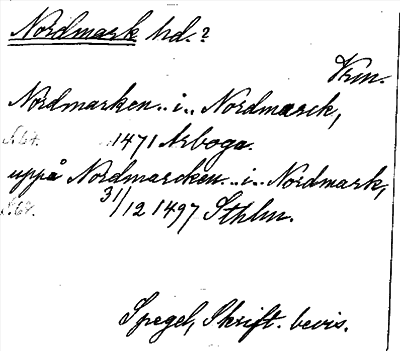 Nordmark hd.?
Vrm.
Nordmarken..i..Nordmarck,
s. 67. 1471 Arboga.
uppå Nordmarcken..i..Nordmark,
s. 68. 31/12 1497 Sthlm.
Spegel, Skrift. bevis.